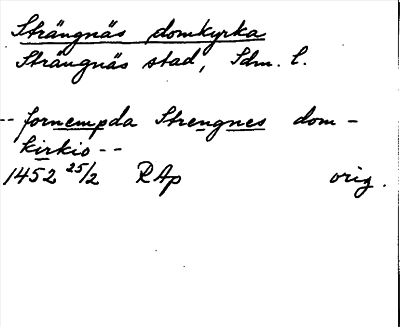 Strängnäs domkyrka
Strängnäs stad, Sdm. l.
-- fornempda Strengnes dom-
kirkio --
1452 25/2 RAp orig.